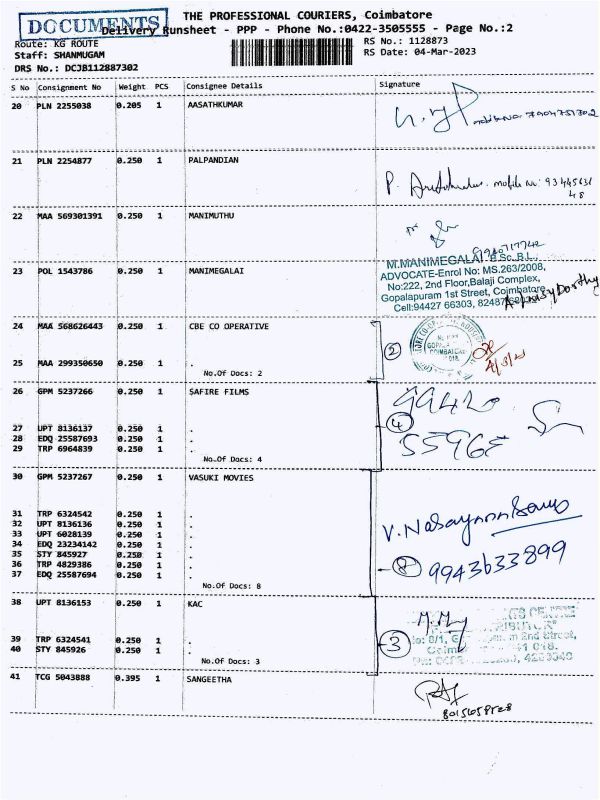 DOCUMENTS
THE PROFESSIONAL COURIERS, Coimbatore
Delivery Runsheet - PPP - Phone No.:0422-3505555 - Page No.:2
Route: KG ROUTE
RS No.: 1128873
Staff: SHANMUGAM
RS Date: 04-Mar-2023
DRS No.: DCJB112887302
S No Consignment No Weight PCS Consignee Details Signature
20 PLN 2255038 0.205 1 AASATHKUMAR
21 PLN 2254877 0.250 1 PALPANDIAN
P. mobile No: 93445631
48
22 MAA 569301391 0.250 1 MANIMUTHU
M.MANIMEGALAI, B.Sc. B.L.,
23 POL 1543786 0.250 1 MANIMEGALAI
ADVOCATE-Enrol No: MS.263/2008,
No:222, 2nd Floor,Balaji Complex,
Gopalapuram 1st Street, Coimbatore
Cell:94427 66303,
24 MAA 568626443 0.250 1 CBE CO OPERATIVE
2
4/3/23
25 MAA 299350650 0.250 1 .
No.Of Docs: 2
26 GPM 5237266 0.250 1 SAFIRE FILMS
99420
4
55965
27 UPT 8136137 0.250 1 .
28 EDQ 25587693 0.250 1 .
29 TRP 6964839 0.250 1 .
No.Of Docs: 4
30 GPM 5237267 0.250 1 VASUKI MOVIES
31 TRP 6324542 0.250 1 .
32 UPT 8136136 0.250 1 .
33 UPT 6028139 0.250 1 .
34 EDQ 23234142 0.250 1 .
35 STY 845927 0.250 1 .
36 TRP 4829386 0.250 1 .
37 EDQ 25587694 0.250 1 .
8 9943633899
No.Of Docs: 8
38 UPT 8136153 0.250 1 KAC
3
39 TRP 6324541 0.250 1 .
40 STY 845926 0.250 1 .
No.Of Docs: 3
41 TCG 5043888 0.395 1 SANGEETHA